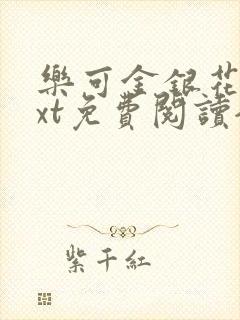 樂可金銀花
xt免費閱讀
紫千紅